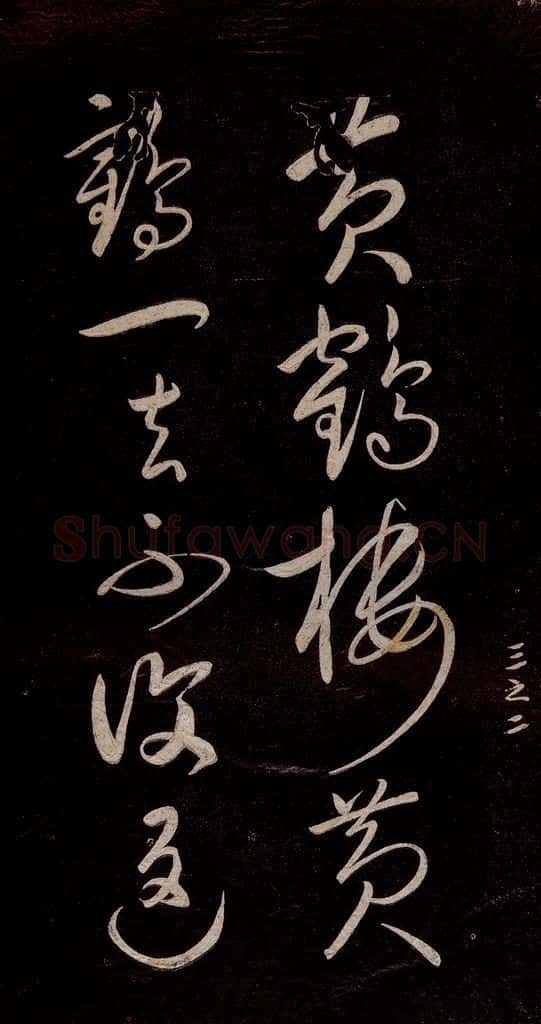 三之二
黄鹤楼黄
鹤一去不复返
Shufawang.CN